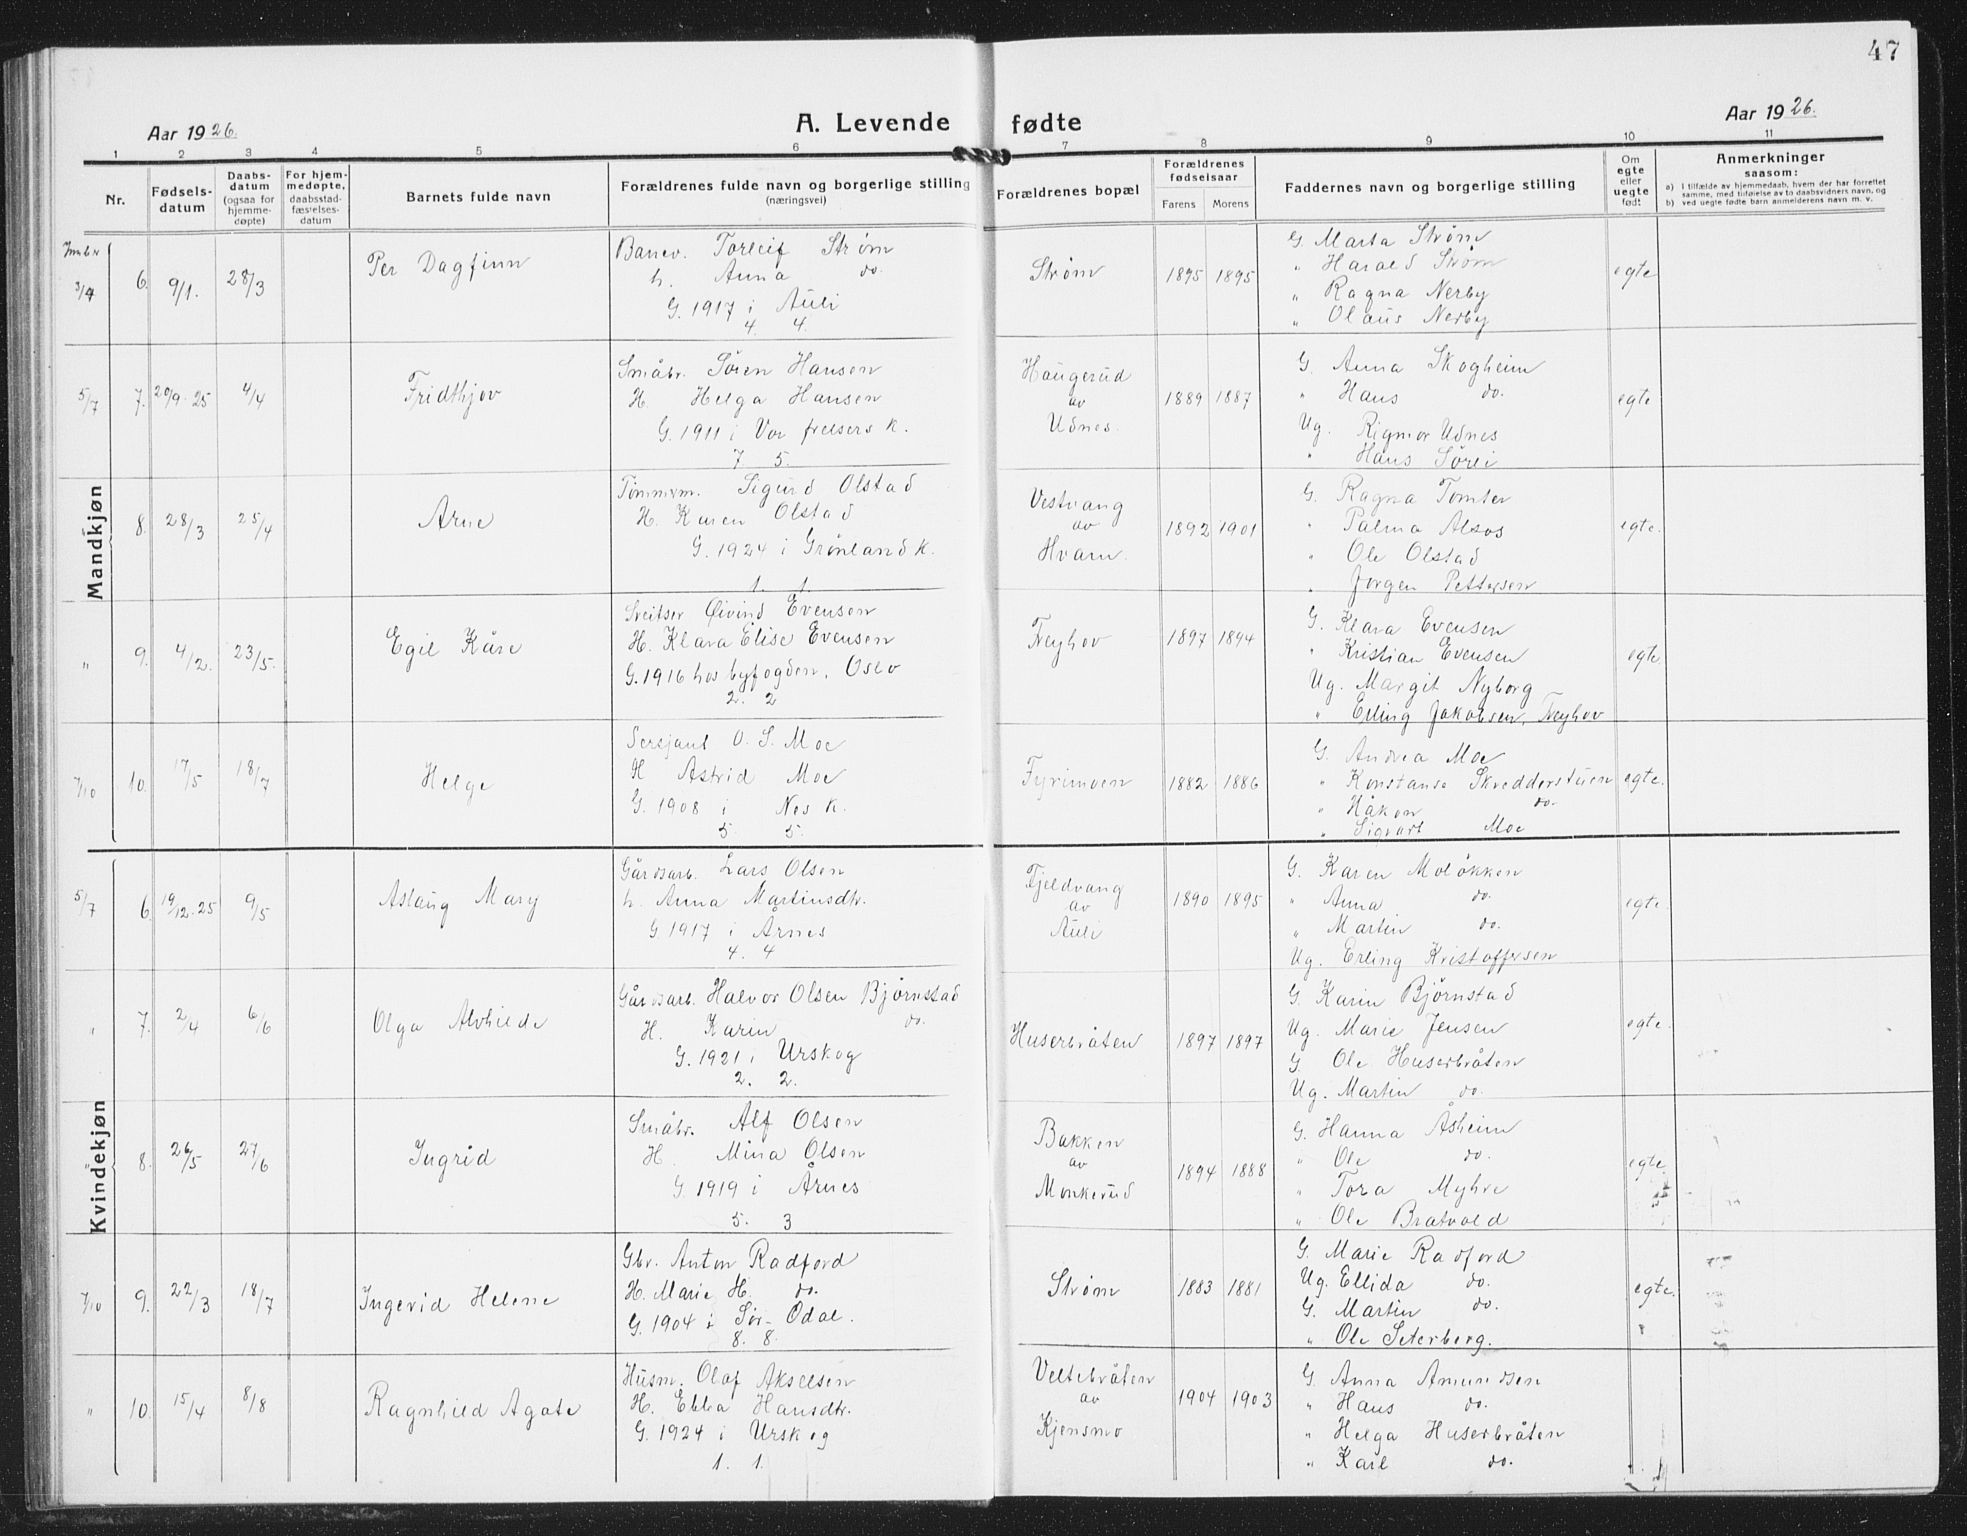 47
Aar 1926.
A. Levende fødte
Aar 1926.
1 2 3 4 5 6 7 8 9 10 11
Nr.
Fødsels-
datum
Daabs-
datum
(ogsaa for
hjemme-
døpte)
For hjem-
medøpte,
daabsstad-
fæstelses-
datum
Barnets fulde navn
Forældrenes fulde navn og borgerlige stilling
(næringsvei)
Forældrenes bopæl
Forældrenes
fødselsaar
Farens Morens
Faddernes navn og borgerlige stilling
Om
egte
eller
uegte
født
Anmerkninger
saasom:
a) I tilfælde av hjemmedaab, hvem der har forrettet
samme, med tilføielse av to daabsvidners navn, og
b) ved uegte fødte barn anmelderens navn m. v.
Mandkjøn
3/4 6. 9/1. 28/3
Per Dagfinn
Banev. Torleif Strøm
h. Anna do.
G. 1917 i Auli
4. 4.
Strøm
1895 1895
G. Marta Strøm
" Harald Strøm
" Ragna Nerby
" Olaus Nerby
egte
5/7 7. 20/9-25 4/4
Fridthjov
Småbr. Søren Hansen
H. Helga Hansen
G. 1911 i Vor frelsers k.
7. 5.
Haugerud
av
Udnes.
1889 1887
G. Anna Skogheim
" Hans do.
Ug. Rigmor Udnes
" Hans Sørli
egte
8. 28/3 25/4
Arne
Tømmerm. Sigurd Olstad
H. Karen Olstad
G. 1924 i Grønland k.
1. 1.
Vestvang
av
Hvam.
1892 1901
G. Ragna Tomter
" Palma Alsos
" Ole Olstad
" Jørgen Pettersen
egte.
" 9. 4/2. 23/5.
Egil Kåre
Sveitser Øivind Evensen
H. Klara Elise Evensen
G. 1916 hos byfogden, Oslo
2. 2
Neyhov
1897 1894
G. Klara Evensen
" Kristian Evensen
Ug. Margit Nyborg
" Erling Jakobsen, Neyhov
egte.
7/10 10. 17/5 18/7
Helge
Sersjant O. S. Moe
H Astrid Moe
G. 1908 i Nes k.
5. 5.
Fyrimoen
1882 1886
G. Andrea Moe
" Konstanse Skredderstuen
" Håkon do.
" Sigvart Moe
egte.
Kvindekjøn
5/7 6. 19/12-25 9/5
Aslaug Mary
Gårdsarb. Lars Olsen
h. Anna Martinsdtr.
G. 1917 i Årnes
4. 4
Fjeldvang
av
Auli
1890 1895
G. Karen Moløkken
" Anna do.
" Martin do.
Ug. Erling Kristoffersen
egte
" 7. 2/4 6/6
Olga Alvhilde
Gårdsarb. Halvor Olsen Bjørnstad
H. Karin do.
G. 1921 i Urskog
2. 2.
Huserbråten
1897 1897
G. Karin Bjørnstad
Ug. Marie Jensen
G. Ole Huserbråten
Ug. Martin do.
egte.
" 8. 26/5 27/6
Ingrid
Småbr. Alf Olsen
H. Mina Olsen
G. 1919 i Årnes
5. 3
Bakken
av
Monkerud
1894 1888
G. Hanna Åsheim
" Ole do.
" Tora Myhre
" Ole Bratvold
egte
7/10 9. 22/3 18/7
Ingerid Helene
Gbr. Anton Radford
H. Marie H. do.
G. 1904 i Sør-Odal.
8. 8.
Strøm
1883 1881
G. Marie Radford
Ug. Ellida do.
G. Martin do.
" Ole Seterberg.
egte.
" 10. 15/4 8/8
Ragnhild Agate
Husm. Olaf Akselsen
H. Ebba Hansdtr.
G. 1924 i Urskog
1. 1.
Veltebråten
av
Kjensmo
1904 1903
G. Anna Amundsen
" Hans do.
" Helga Huserbråten
" Karl do.